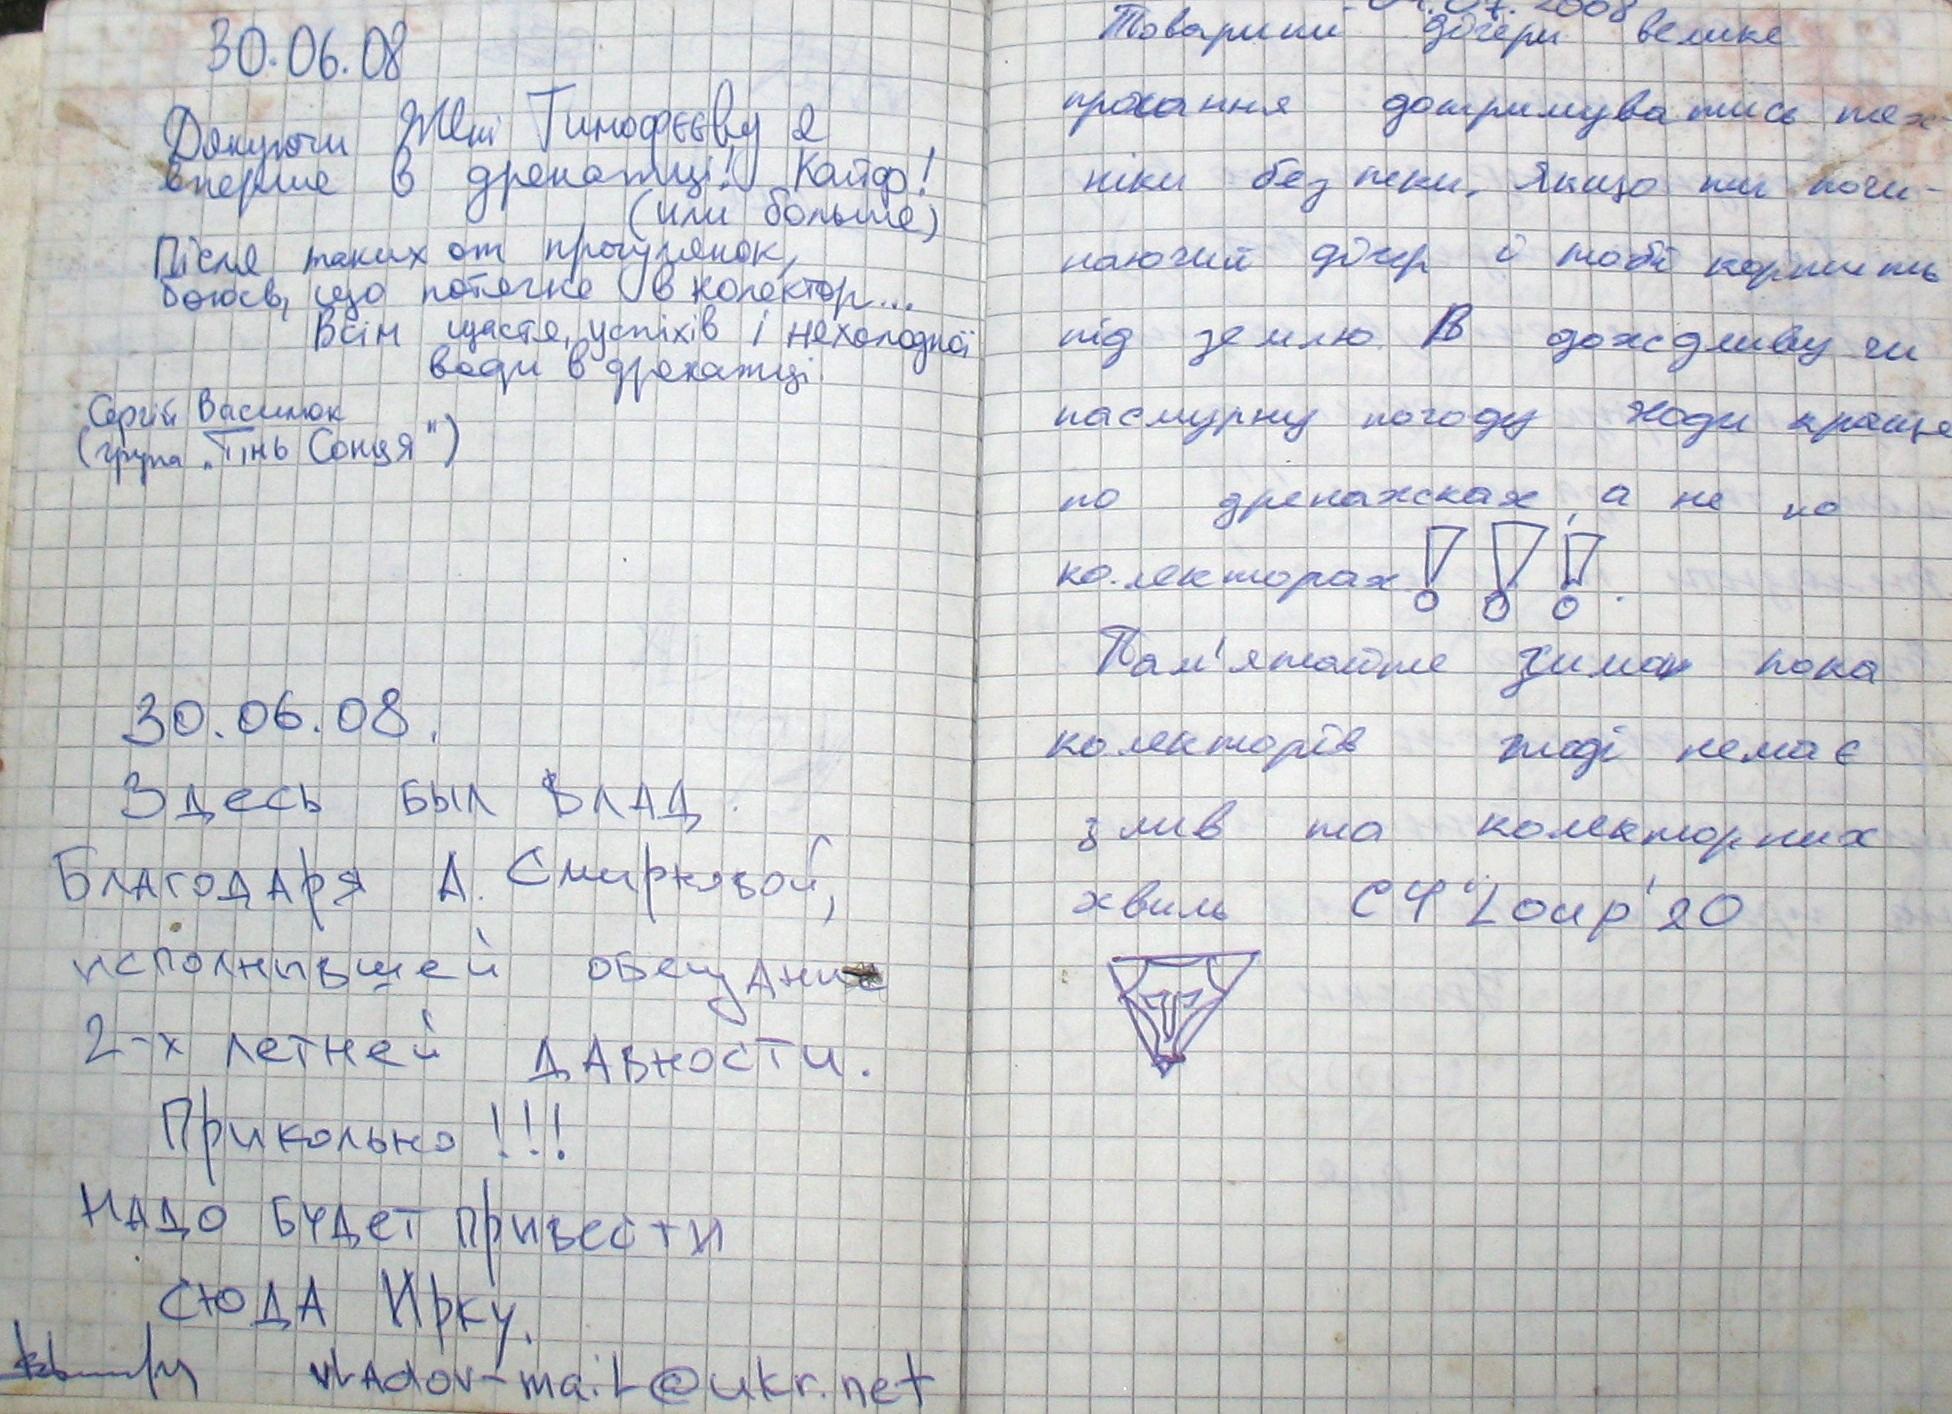 30.06.08
Дякуючи Жені Тимофєєву я
вперше в дренажці! Кайф!
(или больше)
Після таких от прогулянок,
боюсь, що потягне в колектор...
Всім щастя, успіхів і нехолодної
води в дренажці.
Сергій Василюк
(група „Тінь Сонця")
30.06.08.
Здесь был Влад.
Благодаря А. Смирновой,
исполнившей обещание
2-х летней давности.
Прикольно!!!
Надо будет привести
сюда Ирку.
vladov-mail@ukr.net
07.2008
Товариши діґери велике
прохання дотримуватись тех-
ніки безпеки. Якщо ти почи-
наючий діґер й тобі кортить
під землю. В дождливу чи
пасмурну погоду ходи краще
по дренажках, а не по
колекторах!!!.
Пам'ятайте зима пока
колекторів тоді немає
злив та колекторних
хвиль СЧ "Loup'20